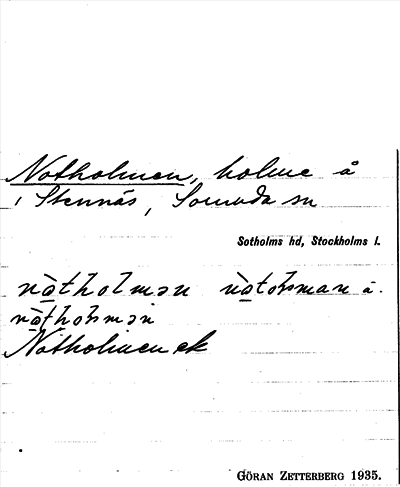 Notholmen, holme å
i Stennäs, Sorunda sn
Sotholms hd, Stockholms l.
nòtholmən nòtoɦman å.
nòthoɦmən
Notholmen ek
GÖRAN ZETTERBERG 1935.